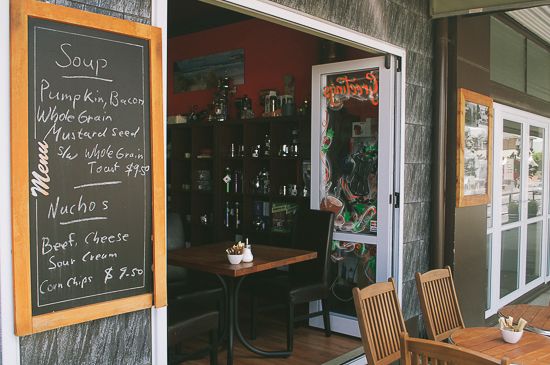 Soup
Pumpkin, Bacon
Whole Grain
Mustard Seed
s/w Whole Grain
Toast $9.50
Nachos
Beef, Cheese
Sour Cream
Corn Chips $9.50
Menu
Greetings